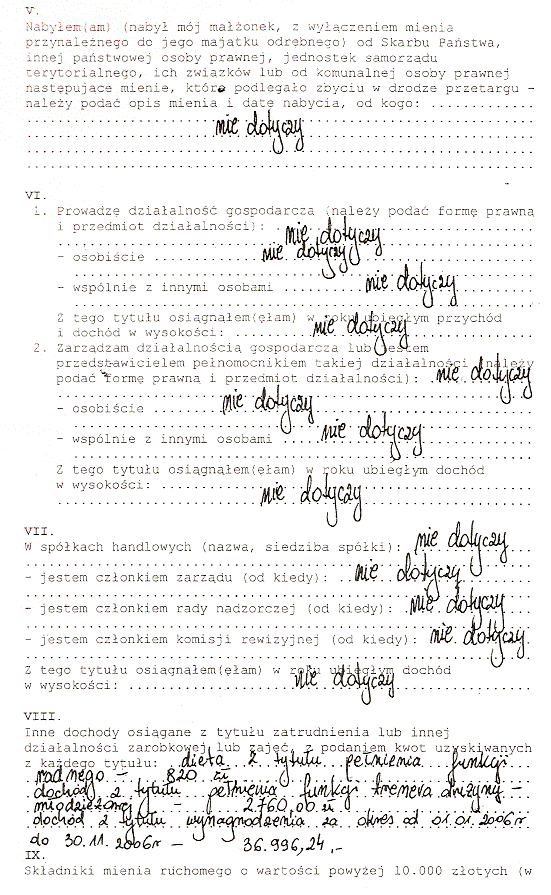 V.
Nabyłem(am) (nabył mój małżonek, z wyłączeniem mienia
przynależnego do jego majatku odrębnego) od Skarbu Państwa,
innej państwowej osoby prawnej, jednostek samorządu
terytorialnego, ich zwiazków lub od komunalnej osoby prawnej
następujace mienie, które podlegało zbyciu w drodze przetargu -
należy podać opis mienia i datę nabycia, od kogo: .............
nie dotyczy
VI.
1. Prowadzę działalność gospodarcza (należy podać formę prawną
i przedmiot działalności): nie dotyczy
- osobiście ........... nie dotyczy
- wspólnie z innymi osobami ......... nie dotyczy
Z tego tytułu osiągnąłem(ęłam) w roku ubiegłym przychód
i dochód w wysokości: ......... nie dotyczy
2. Zarządzam działalnością gospodarcza lub jestem
przedstawicielem pełnomocnikiem takiej działalności (należy
podać formę prawną i przedmiot działalności): nie dotyczy
- osobiście ......... nie dotyczy
- wspólnie z innymi osobami ...... nie dotyczy
Z tego tytułu osiągnąłem(ęłam) w roku ubiegłym dochód
w wysokości: ........... nie dotyczy
VII.
W spółkach handlowych (nazwa, siedziba spółki): nie dotyczy
- jestem członkiem zarządu (od kiedy): .. nie dotyczy
- jestem członkiem rady nadzorczej (od kiedy): nie dotyczy
- jestem członkiem komisji rewizyjnej (od kiedy): nie dotyczy
Z tego tytułu osiągnałem(ełam) w roku ubiegłym dochód
w wysokości: ............ nie dotyczy
VIII.
Inne dochody osiągane z tytułu zatrudnienia lub innej
działalności zarobkowej lub zajęć, z podaniem kwot uzyskiwanych
z każdego tytułu: dieta z tytułu pełnienia funkcji
radnego - 820 zł
dochód z tytułu pełnienia funkcji trenera drużyny -
młodzieżowej - 2760,00 zł
dochód z tytułu wynagrodzenia za okres od 01.01.2006r
do 30.11.2006r - 36.996,24,-
IX.
Składniki mienia ruchomego o wartości powyżej 10.000 złotych (w